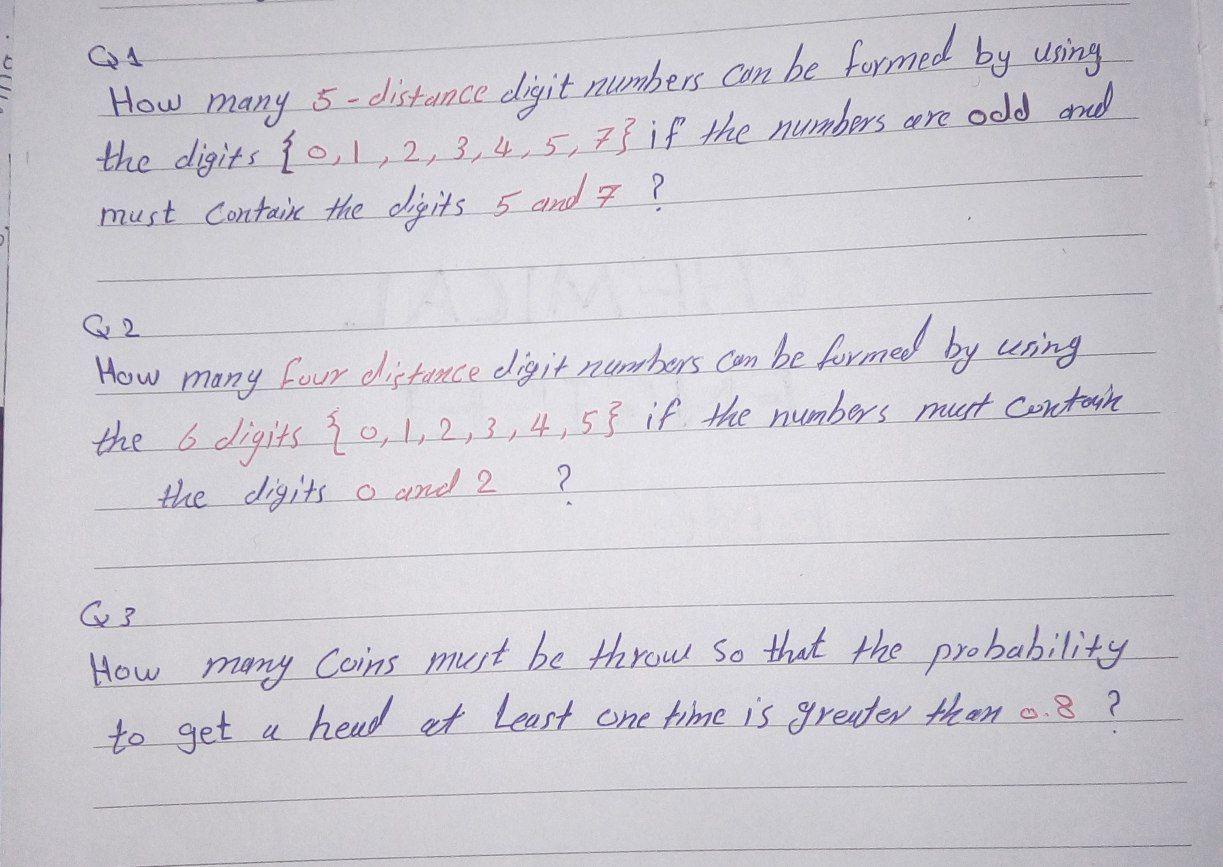 Q1
How many 5-distance digit numbers can be formed by using
the digits {0,1,2,3,4,5,7} if the numbers are odd and
must contain the digits 5 and 7 ?
Q2
How many four distance digit numbers can be formed by using
the 6 digits {0,1,2,3,4,5} if the numbers must contain
the digits 0 and 2 ?
Q3
How many coins must be throw so that the probability
to get a head at least one time is greater than 0.8 ?